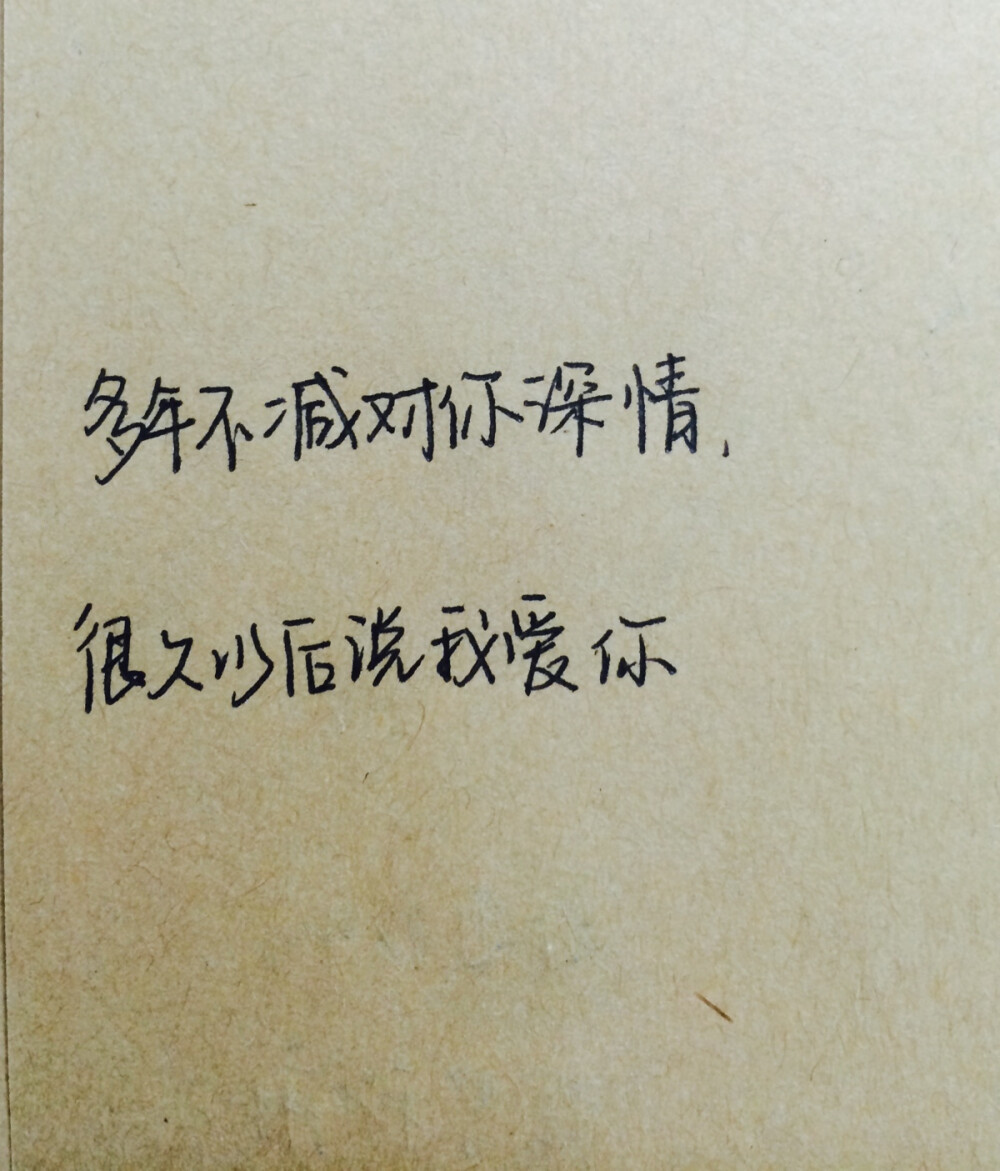 多年不减对你深情,
很久以后说我爱你